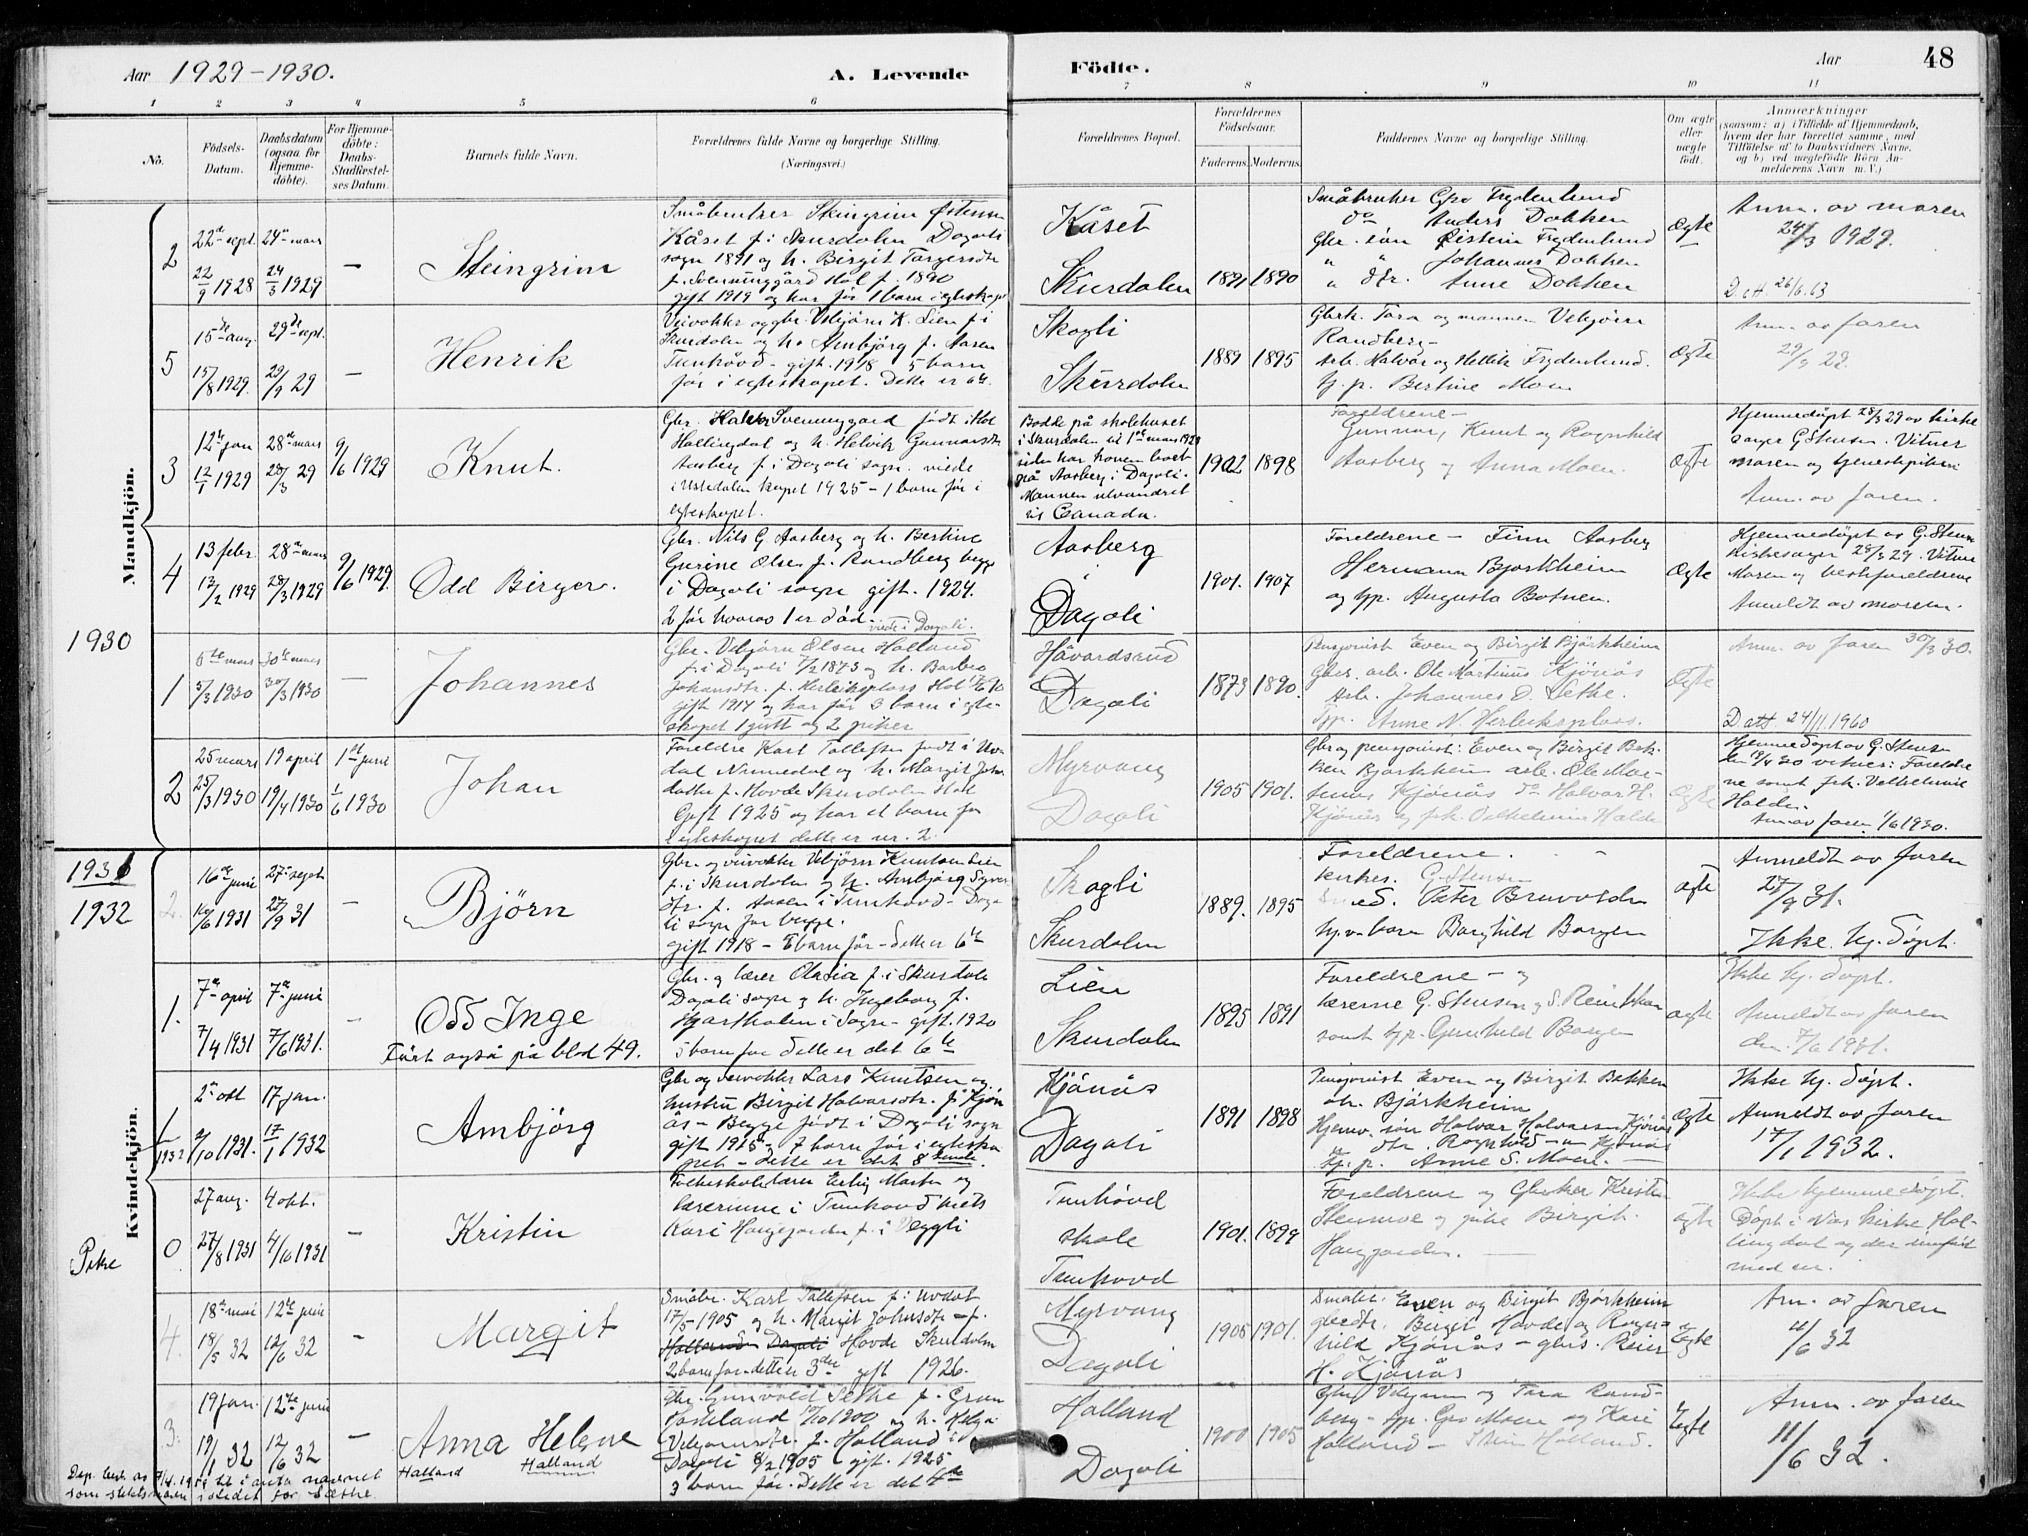 Aar 1929-1930.
A. Levende Födte.
Aar 48
1 2 3 4 5 6 7 8 9 10 11
No.
Födsels-Datum.
Daabsdatum (ogsaa for Hjemme-döbte).
For Hjemme-döbte: Daabs-Stadfæstel-ses Datum.
Barnets fulde Navn.
Forældrenes fulde Navne og borgerlige Stilling.
(Næringsvei.)
Forældrenes Bopæl.
Forældrenes Födselsaar.
Faderens. Moderens.
Faddernes Navne og borgerlige Stilling.
Om ægte eller uægte födt.
Anmærkninger
(saasom: a) i Tilfælde af Hjemmedaab, hvem der har forrettet samme, med Tilföielse af to Daabsvidners Navne, og b) ved uægtefödte Börn An-melderens Navn m. V.)
Mandkjön.
2
22de sept.
22/9 1928
24de mars
24/3 1929
—
Steingrim
Småbruker Steingrim Østensen
Kåset f. i Skurdalen Dagali
sogn 1891 og h. Birgit Torgersdtr
f. Svenninggård Hol f. 1890
gift 1919 og har før 1 barn i egteskapet
Kåset
Skurdalen
1891 1890
Småbruker Gro Frydenlund
do Anders Dokken
Gbr. søn Øistein Frydenlund
" " Johannes Dokken
" dtr. Anne Dokken
Ægte
Anm. av moren
24/3 1929.
D. att. 26/6.63
5
15de aug.
15/8 1929.
29de sept.
29/9 29
—
Henrik
Veivokter og gbr. Vebjörn K. Lien f. i
Skurdalen og h. Ambjörg f. Aasen
Tunhövd - gift. 1918 5 barn
før i egteskapet. Dette er 6te.
Skogli
Skurdalen
1889 1895
Gbrk. Tora og mannen Vebjörn
Randberg -
Arb. Halvor og Hellik Frydenlund.
Hj. p. Bertine Moen
Ægte
Anm. av faren
29/9 29.
3
12te jan
12/1 1929
28de mars
28/3 29
9/6 1929
Knut.
Gbr. Halvor Svenninggard født i Hol
Hallingdal og h. Helvik Gunnarsdtr
Aasberg f. i Dagali sogn. viede
i Uvdalen kapel 1925 - 1 barn før i
egteskapet.
Bodde på skolehuset
i Skurdalen til 1ste mars 1929
siden har konen boet
på Aasberg i Dagali.
Mannen utvandret
til Canada.
1902 1898
Foreldrene -
Gunnar, Knut og Ragnhild
Aasberg og Anna Moen.
Ægte
Hjemmedøpt 28/3 29 av kirke
sanger G. Stensen. Vitner
moren og
Anm. av faren.
4
13 febr.
13/2 1929
28de mars
28/3 1929
9/6 1929.
Odd Birger.
Gbr. Nils G Aasberg og h. Bertine
Gurine Olsen f. Randberg begge
i Dagali sogn gift. 1924.
2 før hvorav 1 er död.
viede i Dagali.
Aasberg
i
Dagali
1901. 1907
Foreldrene - Finn Aasberg
Hermann Bjorkheim
og hp. Augusta Botnen.
Ægte
Hjemmedøpt av G. Stensen
Kirkesanger 28/3 29. Vitner
Moren og besteforeldrene
Anmeldt av moren.
1930
1
5te mars
5/3 1930
30te mars
30/3 1930
—
Johannes
Gbr. Vebjørn Olsen Holland
f. i Dagali 7/2 1873 og h. Barbro
Johansdtr. f. Herleiksplass Hol
gift 1914 og har før 3 barn i egte-
skapet 1 gutt og 2 piker
Håvardsrud
Dagali
1873 1890.
Pensjonist Even og Birgit Bjørkheim
Gbr. arb. Ole Martinus Kjönås
Arb. Johannes D. Sethe.
Hp. Anne N. Herleiksplass.
Ægte
Anm. av faren 30/3 30.
D att. 24/11.1960
2
25 mars
25/3 1930
19 april
19/4 1930
1st juni
1/6 1930
Johan
Foreldre Karl Tollefsen født i Uv-
dal Numedal og h. Margit Johns
datter f. Hovde Skurdalen Hol
Gift 1925 og har et barn før
i egteskapet dette er nr. 2.
Myrvang
Dagali
1905 1901.
Gbr og pensjonist: Even og Birgit Bak-
ken Bjorkheim arb. Ole Mar-
tinus Kjönås do Halvor H.
Kjönås og frk. Velhelmine Halde
Ægte
Hjemmedøpt av G. Stensen
den 19/4 30 vitner: Foreldre
ne samt frk. Velhelmine
Halde.
Anm av faren 1/6 1930.
1931
1932
2.
16de juni
16/6 1931
27. sept
27/9 31
—
Bjørn
Gbr. og veivokter Vebjørn Knutsen Lien
f. i Skurdalen og h. Ambjørg Syver
dtr. f. Aasen i Tunhovd - Daga
li sogn for begge.
gift 1918 - 5 barn før - dette er 6te
Skogli
Skurdalen
1889. 1895
Foreldrene.
kirkes. G. Stensen
Smed. Peter Bruvolden
hp. v. barn Borghild Borgen
ægte
Anmeldt av faren
27/9 31.
Ikke hj. døpt.
1.
7de april
7/4 1931
7de juni
7/6 1931.
—
Odd Inge
Ført også på blad 49.
Gbr. og lærer Ola Lia f. i Skurdalen
Dagali sogn og h. Ingeborg f.
Hjartholen i Sogn - gift. 1920
5 barn før dette er det 6te
Lien
Skurdalen
1895 1891
Foreldrene - og
lærerne G. Stensen og S. Reinskar
samt hp. Gunhild Borgen
ægte
Ikke hj. døpt.
Anmeldt av faren
den 7/6 1931.
Kvindekjön.
1/1932
2de okt
2/10 1931.
17 jan.
17/1 1932
Ambjörg
Gbr og veivokter Lars Knutsen og
hustru Birgit Halvorsdtr. f. Kjön
ås - Begge født i Dagali sogn
gift 1915 og 7 barn før i egteska
pet - dette er det 8tende.
Kjönås
Dagali
1891 1898
Pensjonist Even og Birgit Bakken
Bjørkheim
Hjemv. søn Halvor Halvorsen Kjönås
dtr. Ragnhild - " Kjönås
Hj. p. Anne S. Moen. —
Ægte
Ikke hj. döpt.
Anmeldt av faren
17/1 1932.
Pike
0
27 aug.
27/8 1931
4 okt.
4/10 1931
—
Kristin
Folkeskolelærer Erling Marten og
lærerinne i Tunhovd krets
Kari Haugejorden f. i Veggli
Tunhövd
skole
Tunhovd
1901. 1899
Foreldrene og Kristen
Stenmoe og pike Birgit
Haugjorden. —
ægte
Ikke hjemmedøpt.
Døpt i Nes kirke Hal-
lingdal og der innført
med nr.
4.
18de mai
18/5 32
12te juni
12/6 32
-
Margit
Småbr. Karl Tollefsen f. i Uvdal
17/5 - 1905 og h. Margit Johnsdtr - f.
Hovde Skurdalen
2 barn før - dette er 3die gift 1926.
Myrvang
Dagali
1905 1901.
Småbr. Even og Birgit Bjørkheim
gbrdtr. Birgit Hovde og Ragn-
hild Kjönås - gbrs. Reier
H. Kjönås
Ægte
Anm. av faren
12/6 32
3.
19 jan.
19/1 32
12te juni
12/6 32
—
Anna Helene
Halland Halland
Gbr. Gunvald Sethe f. Gran
Hadeland 17/10 1900 og h. Helga
Vebjørnsdtr. f. Holland i
Dagali 8/2 1905 gift. 1925
3 barn før. Dette er det 4te
Holland
Dagali
1900 1905
Gbr Vebjørn og Tora Rand-
berg - hp. Gro Moen og Kari
Holland - Stein Holland.
Ægte
Anm. av faren
11/6 32.
Dep. besk. av 7/4.1951 til å anta navnet
som slektsnavn i stedet for Sæthe